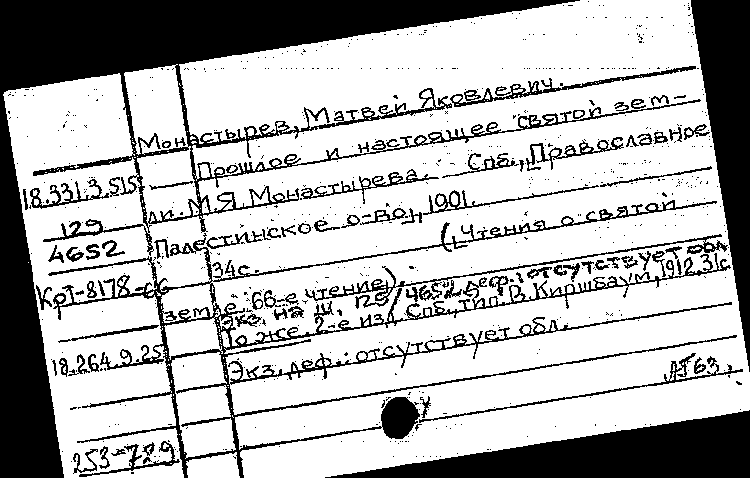 Монастырев, Матвей Яковлевич.
18.331.3.515 Прошлое и настоящее святой зем-
129 ли. М.Я. Монастырева. Спб., Православное
4652 Палестинское о-во, 1901.
34с. (Чтения о святой
Кр1-8178-66 земле. 66-е чтение).
Экз. на ш. 129/4652 деф.: отсутствует обл
То же. 2-е изд. Спб., тип. В. Киршбаум, 1912. 31с
18.264.9.25 Экз. деф.: отсутствует обл.
АГ63,
253-729